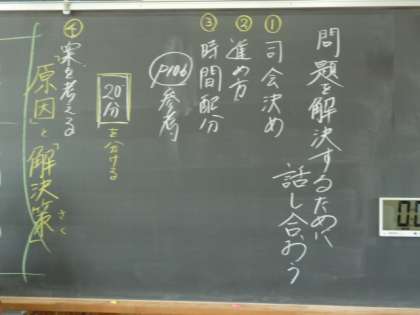 問題を解決するために
話し合おう
①司会決め
②進め方
③時間配分
P106参考
20分を分ける
④案を考える
原因と「解決策
さく